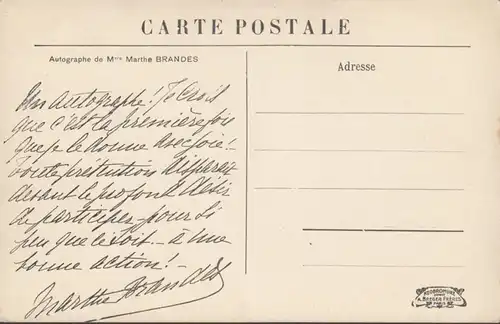 CARTE POSTALE
Autographe de Mlle Marthe BRANDES
Adresse
Un autographe! Je crois
que c'est la première fois
que je le donne avec joie!
toute prétention disparait
devant le profond désir
de participer pour si
peu que ce soit - à une
bonne action! -
Marthe Brandès
A. BERGER FRÈRES
PARIS